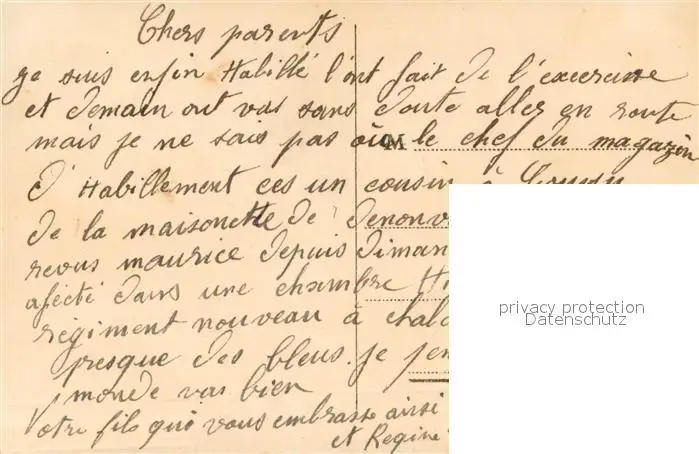 Chers parents
je suis enfin Habillé l'ont fait de l'excercisse
et demain ont vas sans doute aller en route
mais je ne sais pas où le chef du magazin
d'Habillement ces un cousin à
de la maisonette de
revus maurice depuis diman
afécté dans une chambre
régiment nouveau à
presque des bleus. je
monde vas bien
Votre fils qui vous embrasse ainsi
et Regine
privacy protection
Datenschutz